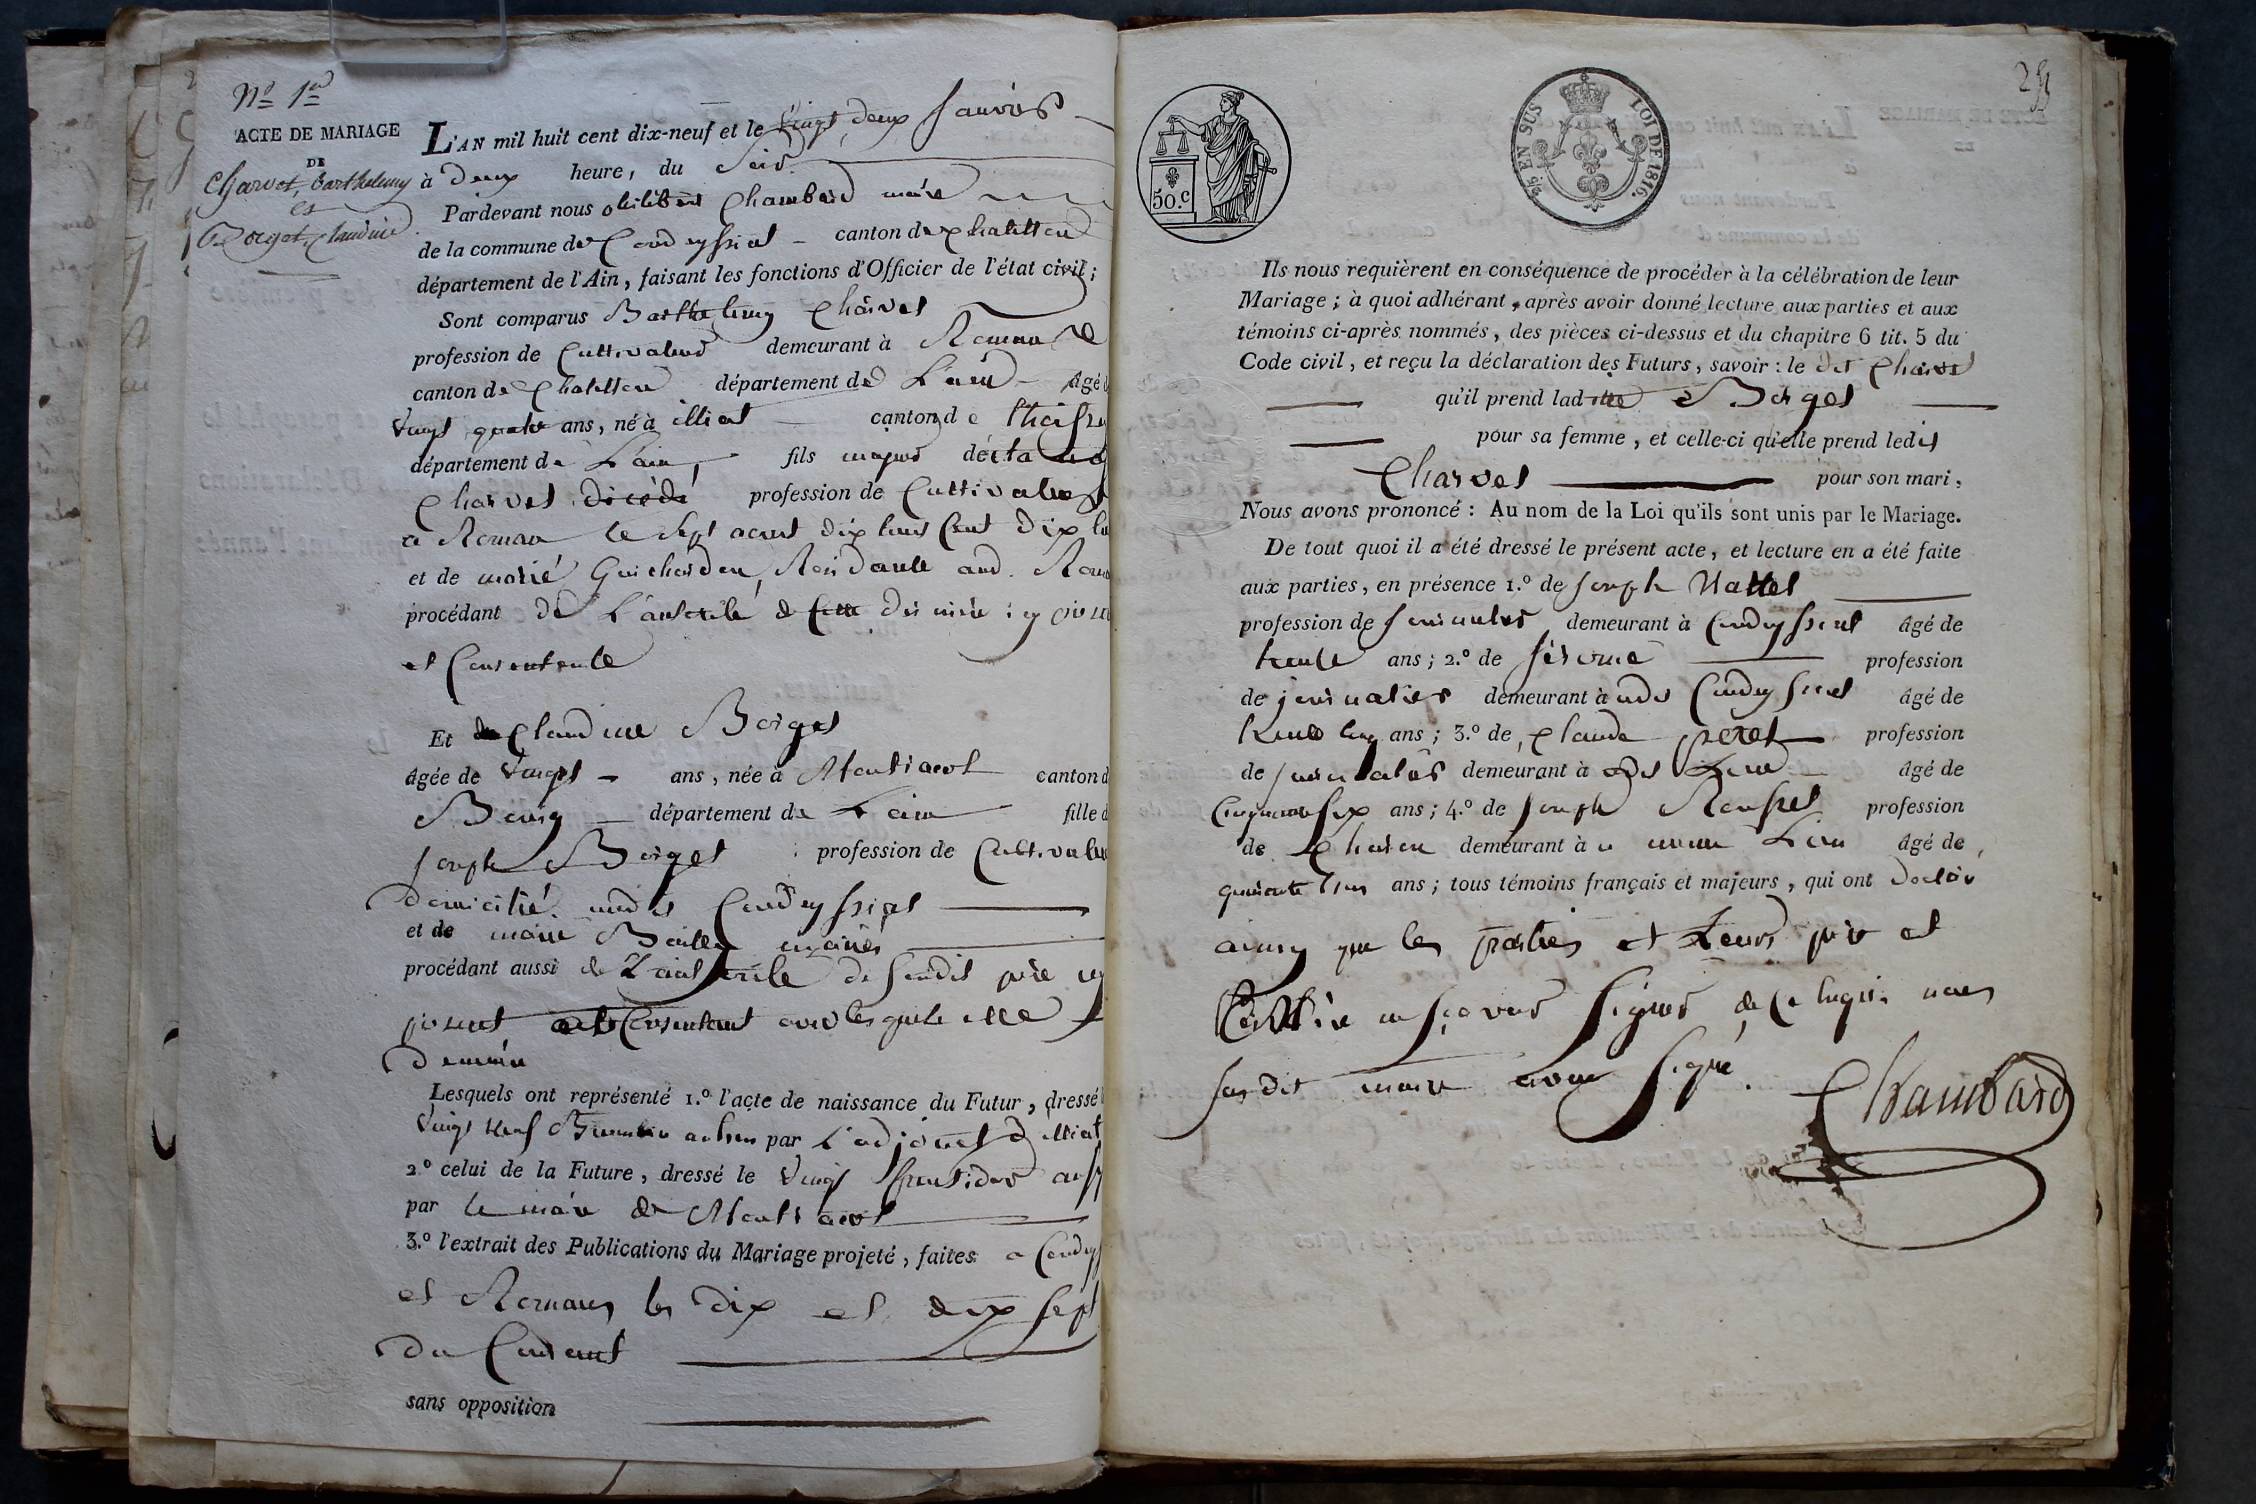 N.o 1er
ACTE DE MARIAGE
DE
Charvet, Barthelemy
et
Borget, Claudine
L'AN mil huit cent dix-neuf et le vingt deux Janvier
à deux heure, du Soir
Pardevant nous philibert Chambard maire
de la commune de Condeyssiat canton de Chatillon
département de l'Ain, faisant les fonctions d'Officier de l'état civil;
Sont comparus Barthelemy Charvet
profession de Cultivateur demeurant à Roman
canton de Chatillon département de L'ain âgé d
vingt quatre ans, né à illiat canton de thoissey
département de L'ain, fils majeur
Charvet décédé profession de Cultivateur
a Roman le Sept aout dix huit Cent dix
et de marie Guichardon, Residante aud. Roman
procédant de L'autorité de cette dernière icy
et Consentente
Et de Claudine Borget
âgée de vingt ans, née à Montracol canton d
Bourg département de L'ain fille d
Joseph Borget profession de Cultivateur
domicilié audit Condeyssiat
et de marie mariés
procédant aussi de L'autorité de Sondit père icy
présent et Consentent avec lesquels elle
demeure
Lesquels ont représenté 1.o l'acte de naissance du Futur, dressé
vingt neuf Brumaire an trois par L'adjoint d'illiat
2.o celui de la Future, dressé le vingt fructidor an
par le maire de Montracol
3.o l'extrait des Publications du Mariage projeté, faites a Condeys
et Romans les dix et dix Sept
du Courant
sans opposition
25
50.C
2/5 EN SUS
LOI DE 1816.
Ils nous requièrent en conséquence de procéder à la célébration de leur
Mariage; à quoi adhérant, après avoir donné lecture aux parties et aux
témoins ci-après nommés, des pièces ci-dessus et du chapitre 6 tit. 5 du
Code civil, et reçu la déclaration des Futurs, savoir: le dit Charvet
qu'il prend ladite Borget
pour sa femme, et celle-ci qu'elle prend ledit
Charvet pour son mari,
Nous avons prononcé: Au nom de la Loi qu'ils sont unis par le Mariage.
De tout quoi il a été dressé le présent acte, et lecture en a été faite
aux parties, en présence 1.o de Joseph
profession de Journalier demeurant à Condeyssiat âgé de
trente ans; 2.o de Jérome profession
de journalier demeurant à audit Condeyssiat âgé de
trente Cinq ans; 3.o de Claude peret profession
de journalier demeurant à âgé de
Cinquante six ans; 4.o de Joseph Rousset profession
de demeurant à âgé de
quarante trois ans; tous témoins français et majeurs, qui ont déclaré
ainsy que les parties et Leurs père et
mère ne Savoir Signer de Ce enquis nous
Susdit maire avons Signé.
Chambard